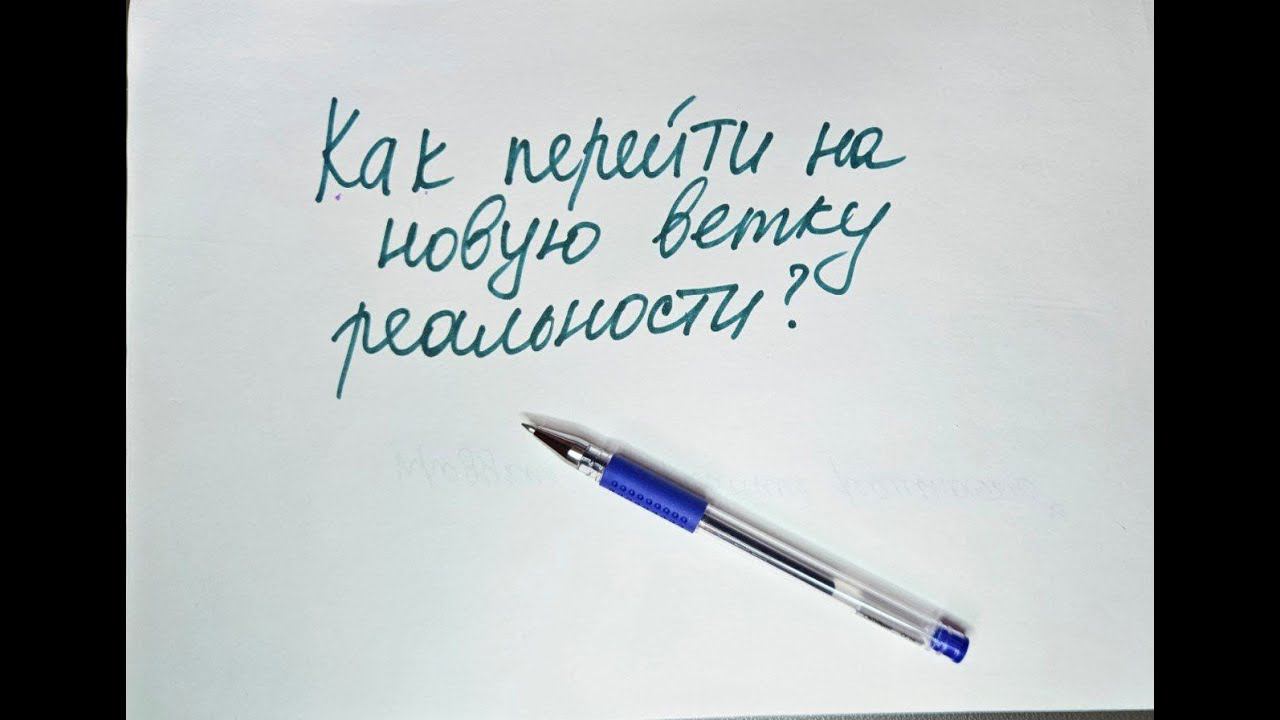 Как перейти на
новую ветку
реальности?